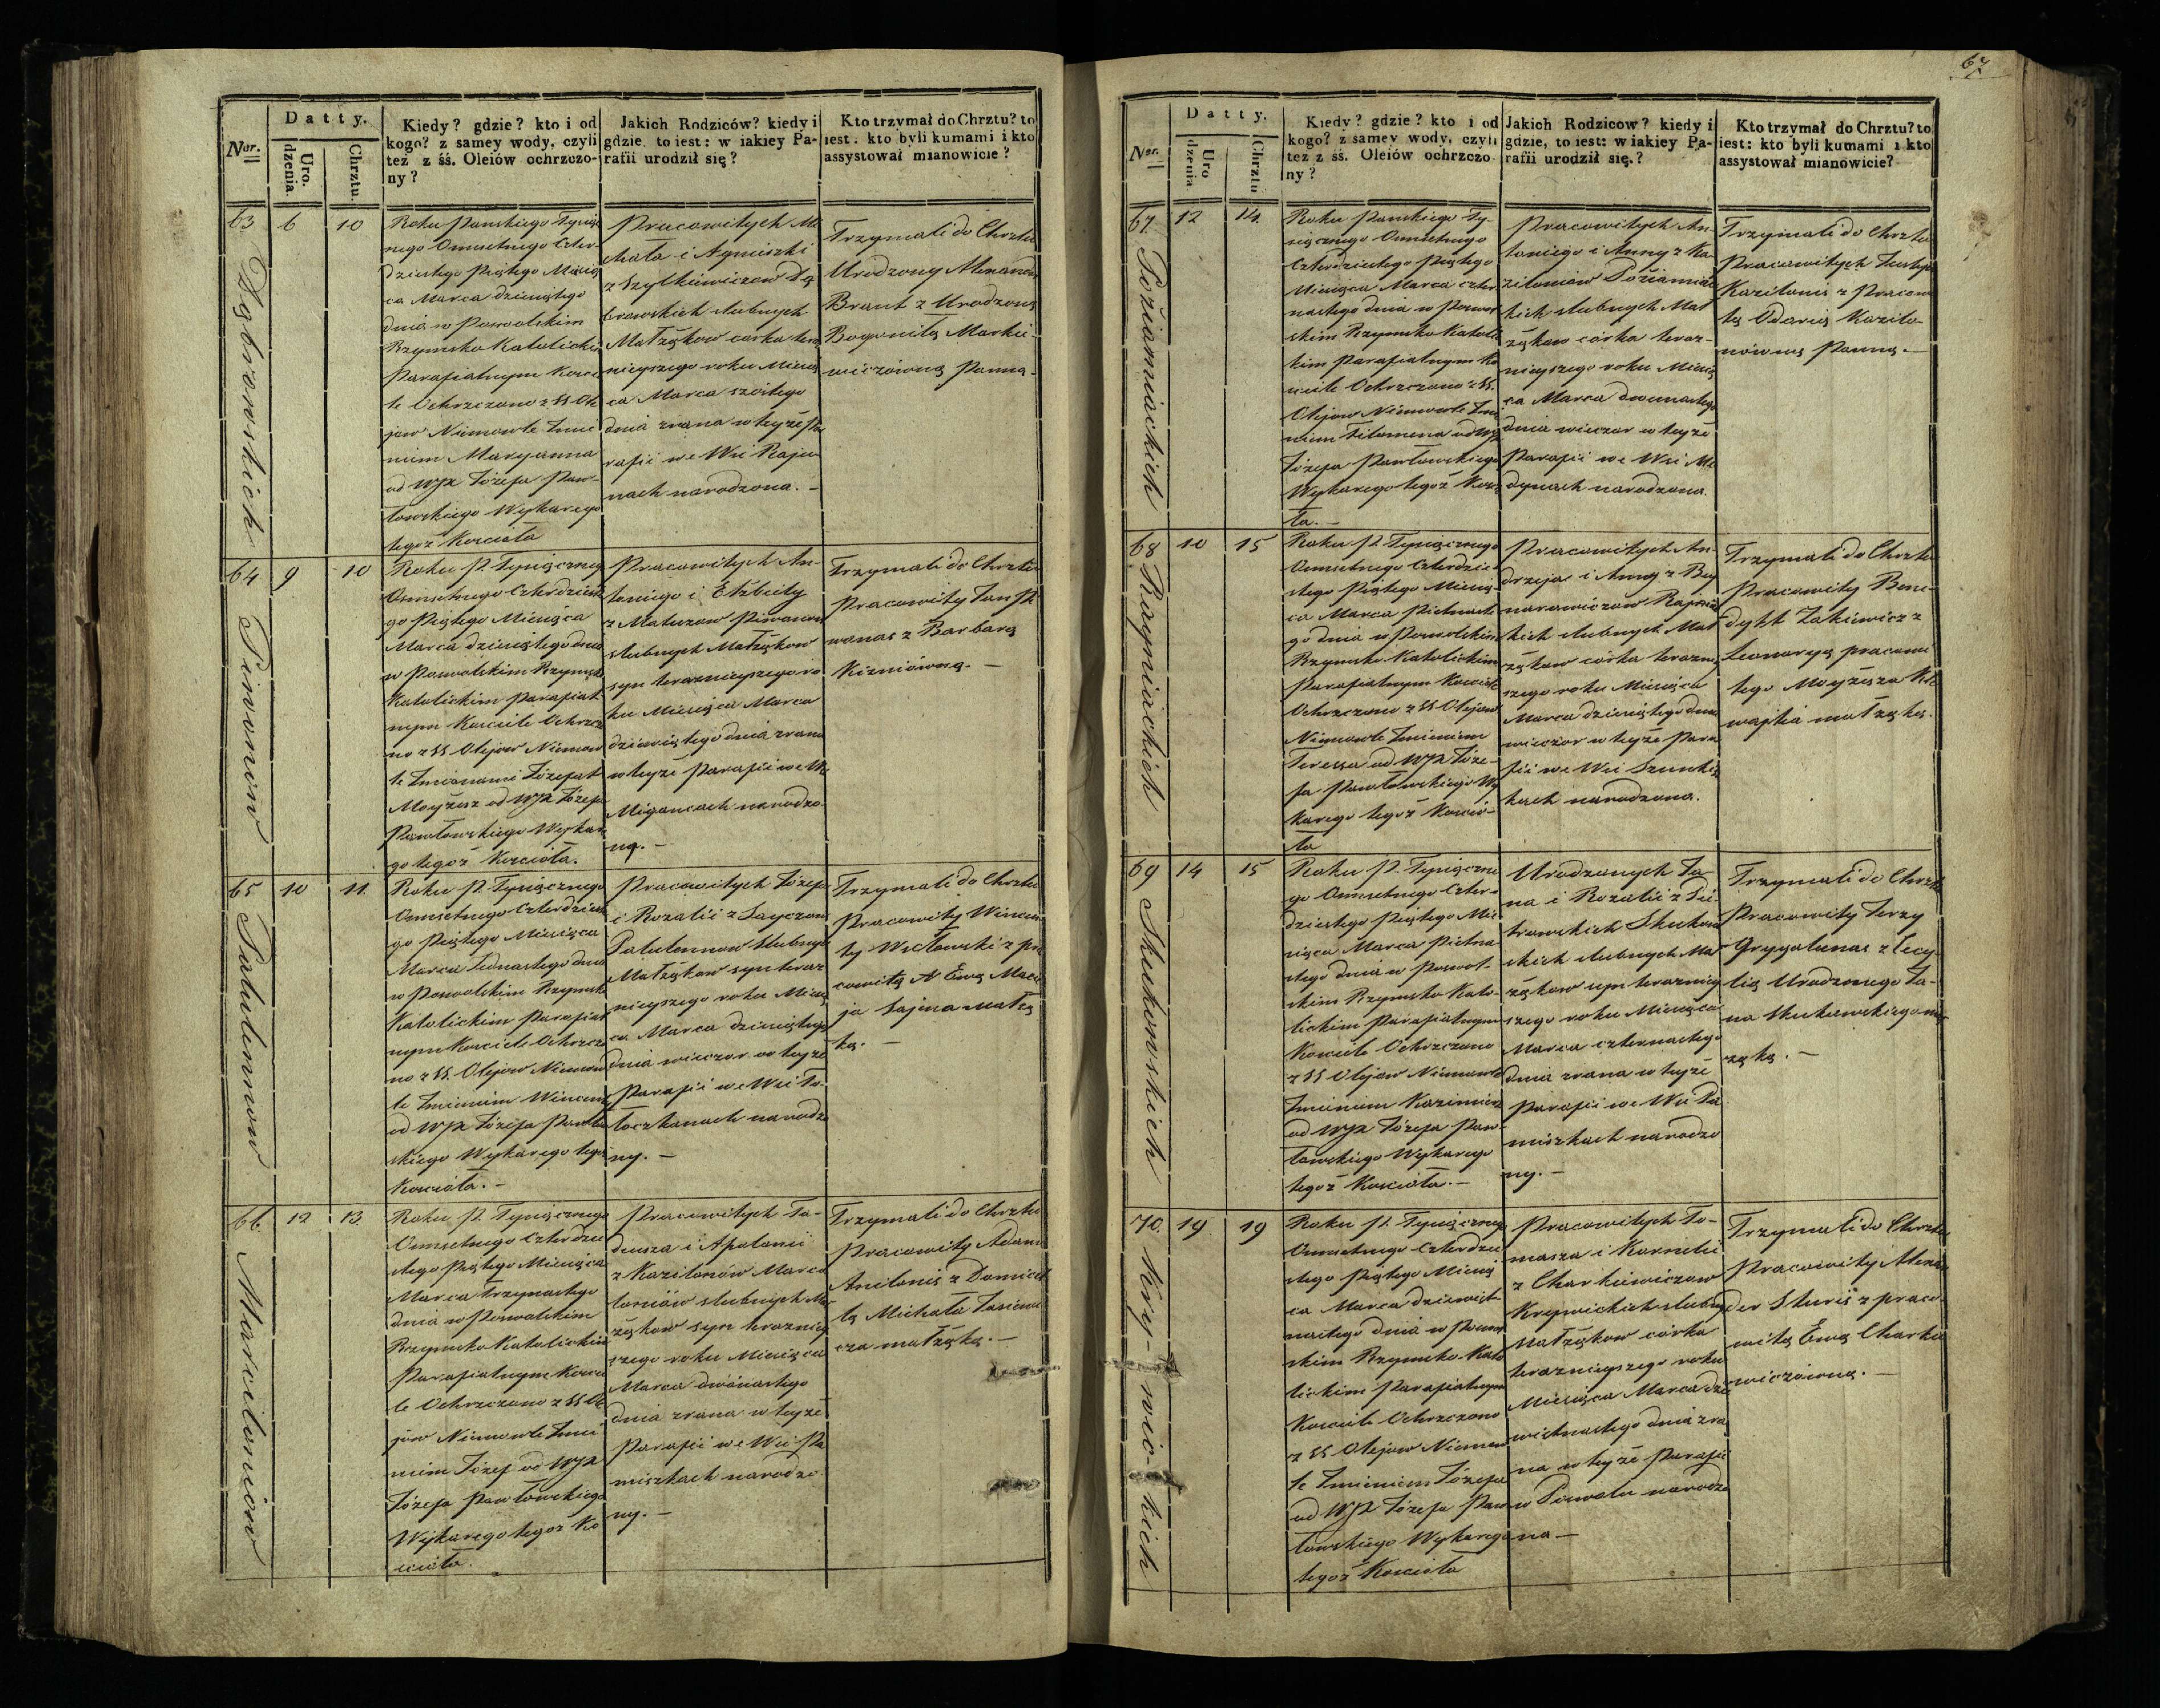 67
Nor.
Datty.
Uro.
dzenia.
Chrztu.
Kiedy? gdzie? kto i od
kogo? z samey wody, czyli
też z śś. Oleiów ochrzczo-
ny?
Jakich Rodziców? kiedy i
gdzie, to iest: w iakiey Pa-
rafii urodził się?
Kto trzymał do Chrztu? to
iest: kto byli kumami i kto
assystował mianowicie?
63
6
10
Roku Panskiego Tysiącz
nego Osmsetnego Czter-
dziestego Piątego Miesią
ca Marca dziesiątego
dnia w Poswolskim
Rzymsko Katolickim
Parafialnym Kosce
le Ochrzczono z SS Ole
jow Niemowle Imie
niem Maryanna
od WJX Józefa Paw-
łowskiego Wykarego
tegoż Kosciola
Pracowitych Mi
chała i Agnieszki
z Szylkiewiczow
browskich slubnych
Małżąkow corka tera
nieyszego roku Miesią
ca Marca szóstego
dnia zrana w teyże Pa
rafii we Wsi Raju
nach narodzona. -
Trzymali do Chrztu
Urodzony Alexander
Brant z Urodzoną
Bogumiłą Markie-
wiczówną Panną.
64
Piwanow
9
10
Roku P. Tysiącznego
Osmsetnego Czterdziest
go Piątego Miesiąca
Marca dziesiątego dnia
w Poswolskim Rzymsko
Katolickim Parafial
nym Kosciele Ochrzczo
no z SS Olejow Niemow
le Imionami Józefat
Moyżesz od WJX Józefa
Pawłowskiego Wykare
go tegoż Kosciola.
Pracowitych An-
toniego i Elżbiety
z Matuzow Piwanow
slubnych Małżąkow
syn teraznieyszego ro
ku Miesiąca Marca
dziewiątego dnia zrana
w teyże Parafii we Wsi
Migancach narodzo
ny. -
Trzymali do Chrztu
Pracowity Jan Pi
wanas z Barbarą
Kizniówną. -
65
10
11.
Roku P. Tysiącznego
Osmsetnego Czterdziest
go Piątego Miesiąca
Marca Jednastego dnia
w Poswolskim Rzymsko
Katolickim Parafial
nym Kosciele Ochrzczo
no z SS. Olejow Niemow
le Imieniem Wincenty
od WJX Józefa Pawłow
skiego Wykarego tegoż
Kosciola. -
Pracowitych Józefa
i Rozalii z Sayczow
slubnych
Małżąkow syn teraz
nieyszego roku Miesią
ca Marca dziesiątego
dnia wieczor w teyże
Parafii we Wsi To
łoczkanach narodzo
ny. -
Trzymali do Chrztu
Pracowity Wincen
ty Wisłowski z pra
cowitą N Ewą Macie
ja Sajna małżą
ką. -
66.
Marciloniow
12
13.
Roku P. Tysiącznego
Osmsetnego Czterdzie
stego Piątego Miesiąca
Marca trzynastego
dnia w Poswolskim
Rzymsko Katolickim
Parafialnym Koscie
le Ochrzczono z SS Ole
jów Niemowle Imie
niem Józef od WJX
Józefa Pawłowskiego
Wykarego tegoż Ko
sciola.
Pracowitych Ta-
deusza i Apolonii
z Kazilonów Marci
loniów slubnych Mał
żąkow syn terazniey
szego roku Miesiąca
Marca dwónastego
dnia zrana w teyże
Parafii we Wsi Pa
miszkach narodzo
ny. -
Trzymali do Chrztu
Pracowity Adam
Anilonis z Domicel
lą Michała Jasiewi
cza małżąką. -
Nor.
Datty.
Uro
dzenia
Chrztu
Kiedy? gdzie? kto i od
kogo? z samey wody, czyli
też z śś. Oleiów ochrzczo-
ny?
Jakich Rodzicow? kiedy i
gdzie, to iest: w iakiey Pa-
rafii urodził się.?
Kto trzymał do Chrztu? to
iest: kto byli kumami i kto
assystował mianowicie?
67
Pożarniackich
12
14.
Roku Panskiego Ty-
siącznego Osmsetnego
Czterdziestego Piątego
Miesiąca Marca czter
nastego dnia w Poswol
skim Rzymsko Katolic
kim Parafialnym Ko
sciele Ochrzczono z SS.
Olejow Niemowle Imie
niem Filomena od WJX
Józefa Pawłowskiego
Wykarego tegoż Koscio
ła. -
Pracowitych An-
toniego i Anny z Ka-
zilonów Pożarniac
kich slubnych Mał
żąkow córka teraz-
nieyszego roku Miesią
ca Marca dwunastego
dnia wieczor w teyże
Parafii we Wsi Me
dynach narodzona.
Trzymali do Chrztu
Pracowitych Justyn
Kazilonis z Pracowi
tą Odarią Kazilo-
nówną Panną. -
68
10
15
Roku P. Tysiącznego
Osmsetnego Czterdzie
stego Piątego Miesią
ca Marca Pietnaste
go dnia w Poswolskim
Rzymsko Katolickim
Parafialnym Kosciele
Ochrzczono z SS Olejow
Niemowle Imieniem
Teressa od WJX Józe-
fa Pawłowskiego Wy
karego tegoż Koscio-
ła
Pracowitych An-
drzeja i Anny z Bey
narowiczow
kich slubnych Mał
żąkow córka teraznie
szego roku Miesiąca
Marca dziesiątego dnia
wieczor w teyże Para
fii we Wsi Szunkisz
kach narodzona.
Trzymali do Chrztu
Pracowity Bene-
dykt Zakiewicz z
Leonaryą pracowi
tego Moyżesza
małżąką.
69
Skukowskich
14
15
Roku P. Tysiączne
go Osmsetnego Czter-
dziestego Piątego Mie
siąca Marca Pietna
stego dnia w Poswol-
skim Rzymsko Kato-
lickim Parafialnym
Koscieie Ochrzczono
z SS Olejow Niemowle
Imieniem Kazimierz
od WJX Józefa Paw-
łowskiego Wykarego
tegoż Kosciola. -
Urodzonych Ja-
na i Rozalii z Pie-
trowskich Skukow
skich slubnych Mał
żąkow syn terazniey
szego roku Miesiąca
Marca czternastego
dnia zrana w teyże
Parafii we Wsi Pa
miszkach narodzo
ny. -
Trzymali do Chrztu
Pracowity Jerzy
Grygalunas z Cecy-
lią Urodzonego Ja-
na Skukowskiego mał
żąką. -
70.
19
19
Roku P. Tysiącznego
Osmsetnego Czterdzie
stego Piątego Miesią
ca Marca dziewięt-
nastego dnia w Poswol
skim Rzymsko Kato
lickim Parafialnym
Koscieie Ochrzczono
z SS Olejow Niemow
le Imieniem Józefa
od WJX Józefa Paw
łowskiego Wykarego
tegoż Kosciola
Pracowitych To-
masza i Kornelii
z Charkiewiczow
Krywickich slubnych
Małżąkow córka
teraznieyszego roku
Miesiąca Marca dzie
wietnastego dnia zra
na w teyże Parafii
w Poswolu narodzo
na -
Trzymali do Chrztu
Pracowity Alexan
der Sturis z praco
witą Ewą Charkie
wiczówną. -